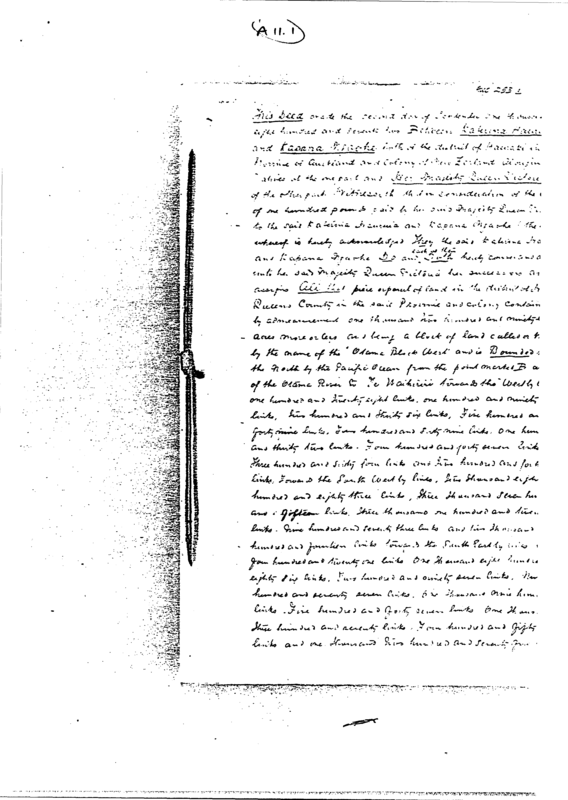 A 11.1
This Deed made the second day of September one thousand
eight hundred and seventy two Between Katerina
and Kapana both of the district of Hauraki in
Province of Auckland and Colony of New Zealand
of the one part and Her Majesty Queen Victoria
of the other part Witnesseth that in consideration of the
of one hundred pounds paid by her said Majesty Queen
to the said Katerina and Kapana the
whereof is hereby acknowledged They the said Katerina
and Kapana Do and each of them Doth hereby convey and
unto her said Majesty Queen Victoria her successors
assigns All that piece or parcel of land in the district of
Queens County in the said Province and Colony
by admeasurement one thousand two hundred and ninety
acres more or less and being a block of land called or
by the name of the Otama Block West and is Bounded
the North by the Pacific Ocean from the point marked B
of the Otama River to Te towards the West by
one hundred and twenty eight links, one hundred and ninety
links, two hundred and thirty six links, Five hundred and
forty nine links, Two hundred and sixty nine links, One
and thirty two links, Four hundred and forty seven links
Three hundred and sixty four links and two hundred and
links, Towards the South West by lines, two thousand eight
hundred and eighty three links, three thousand seven
and fifteen links, three thousand one hundred and
links, Nine hundred and seventy three links and two thousand
hundred and fourteen links towards the South East by lines
four hundred and twenty one links One thousand eight hundred
eighty six links, Two hundred and ninety seven links,
hundred and seventy seven links, One thousand nine
links, Five hundred and forty seven links One
three hundred and seventy links, Four hundred and fifty
links and one thousand two hundred and seventy